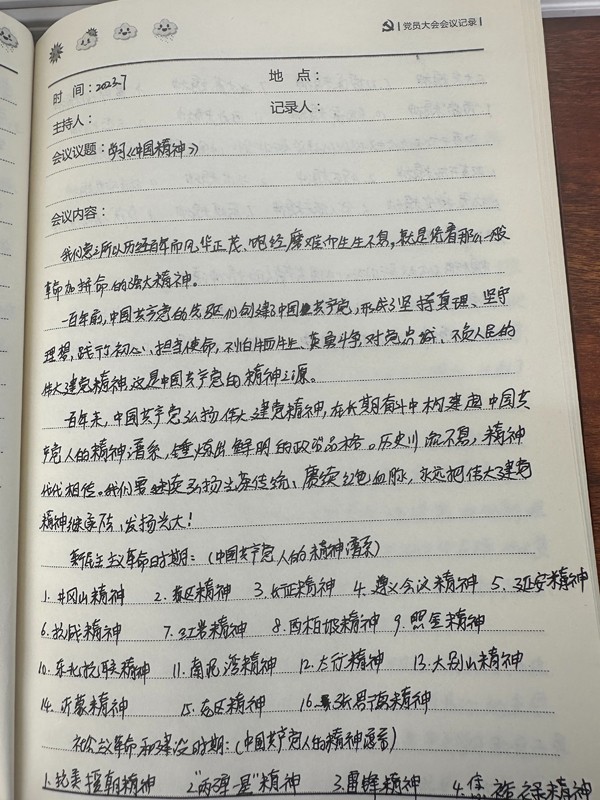 党员大会会议记录
时 间：2023.7 地 点：
主持人： 记录人：
会议议题：学习《中国精神》
会议内容：
我们党之所以历经百年而风华正茂、饱经磨难而生生不息，就是凭着那么一股
革命加拼命的强大精神。
一百年前，中国共产党的先驱们创建了中国共产党，形成了坚持真理、坚守
理想，践行初心、担当使命，不怕牺牲、英勇斗争，对党忠诚、不负人民的
伟大建党精神，这是中国共产党的精神之源。
百年来，中国共产党弘扬伟大建党精神，在长期奋斗中构建起中国共
产党人的精神谱系，锤炼出鲜明的政治品格。历史川流不息，精神
代代相传。我们要继续弘扬光荣传统、赓续红色血脉，永远把伟大建党
精神继承下去、发扬光大！
新民主主义革命时期：（中国共产党人的精神谱系）
1. 井冈山精神 2. 苏区精神 3. 长征精神 4. 遵义会议精神 5. 延安精神
6. 抗战精神 7. 红岩精神 8. 西柏坡精神 9. 照金精神
10. 东北抗联精神 11. 南泥湾精神 12. 太行精神 13. 大别山精神
14. 沂蒙精神 15. 老区精神 16. 张思德精神
社会主义革命和建设时期：（中国共产党人的精神谱系）
1. 抗美援朝精神 2. "两弹一星"精神 3. 雷锋精神 4. 焦裕禄精神